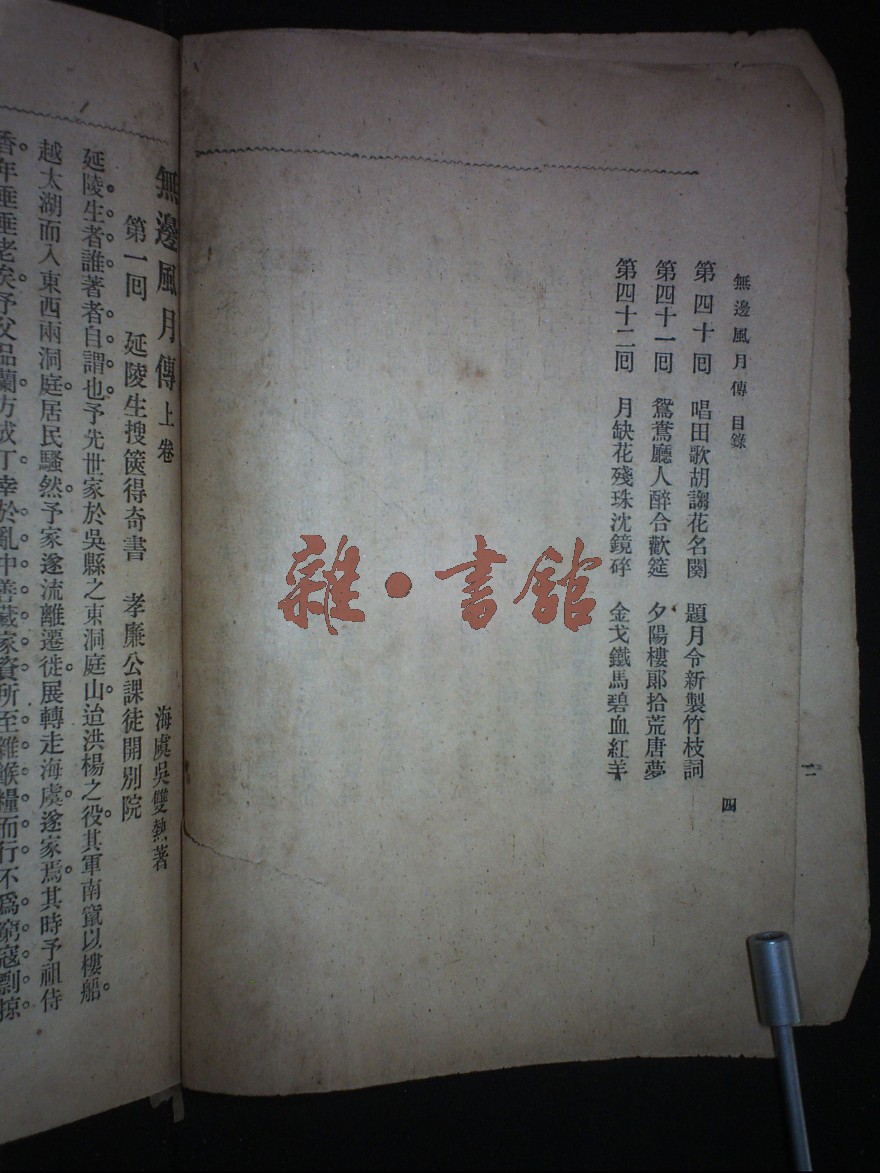 無邊風月傳 目錄
四
第四十回 唱田歌胡謅花名閿 題月令新製竹枝詞
第四十一回 鴛鴦廳人醉合歡筵 夕陽樓郞拾荒唐夢
第四十二回 月缺花殘珠沈鏡碎 金戈鐵馬碧血紅羊
無邊風月傳 上卷
海虞吳雙熱著
第一回 延陵生搜篋得奇書 孝廉公課徒開別院
延陵生者。誰著者自謂也。予先世家於吳縣之東洞庭山。迨洪楊之役。其軍南竄以樓船。
越太湖而入東西兩洞庭。居民騷然。予家遂流離遷徙。展轉走海虞。遂家焉。其時予祖侍
香年垂垂老矣。予父品蘭方成丁。幸於亂中善藏家資。所至雜餱糧而行。不爲窮寇剽掠。
雜·書館